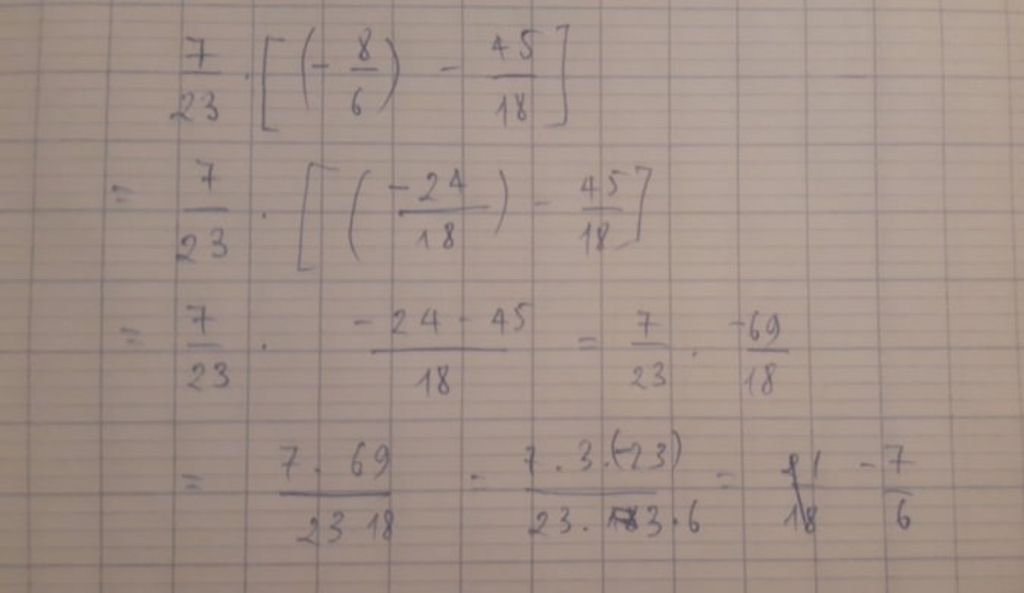 7/23 · [(- 8/6) - 45/18]
= 7/23 · [(-24/18) - 45/18]
= 7/23 · (-24 - 45)/18 = 7/23 · -69/18
= (7 · 69)/(23 18) = (7 . 3 . (-23))/(23 . 3 . 6) = - 7/6